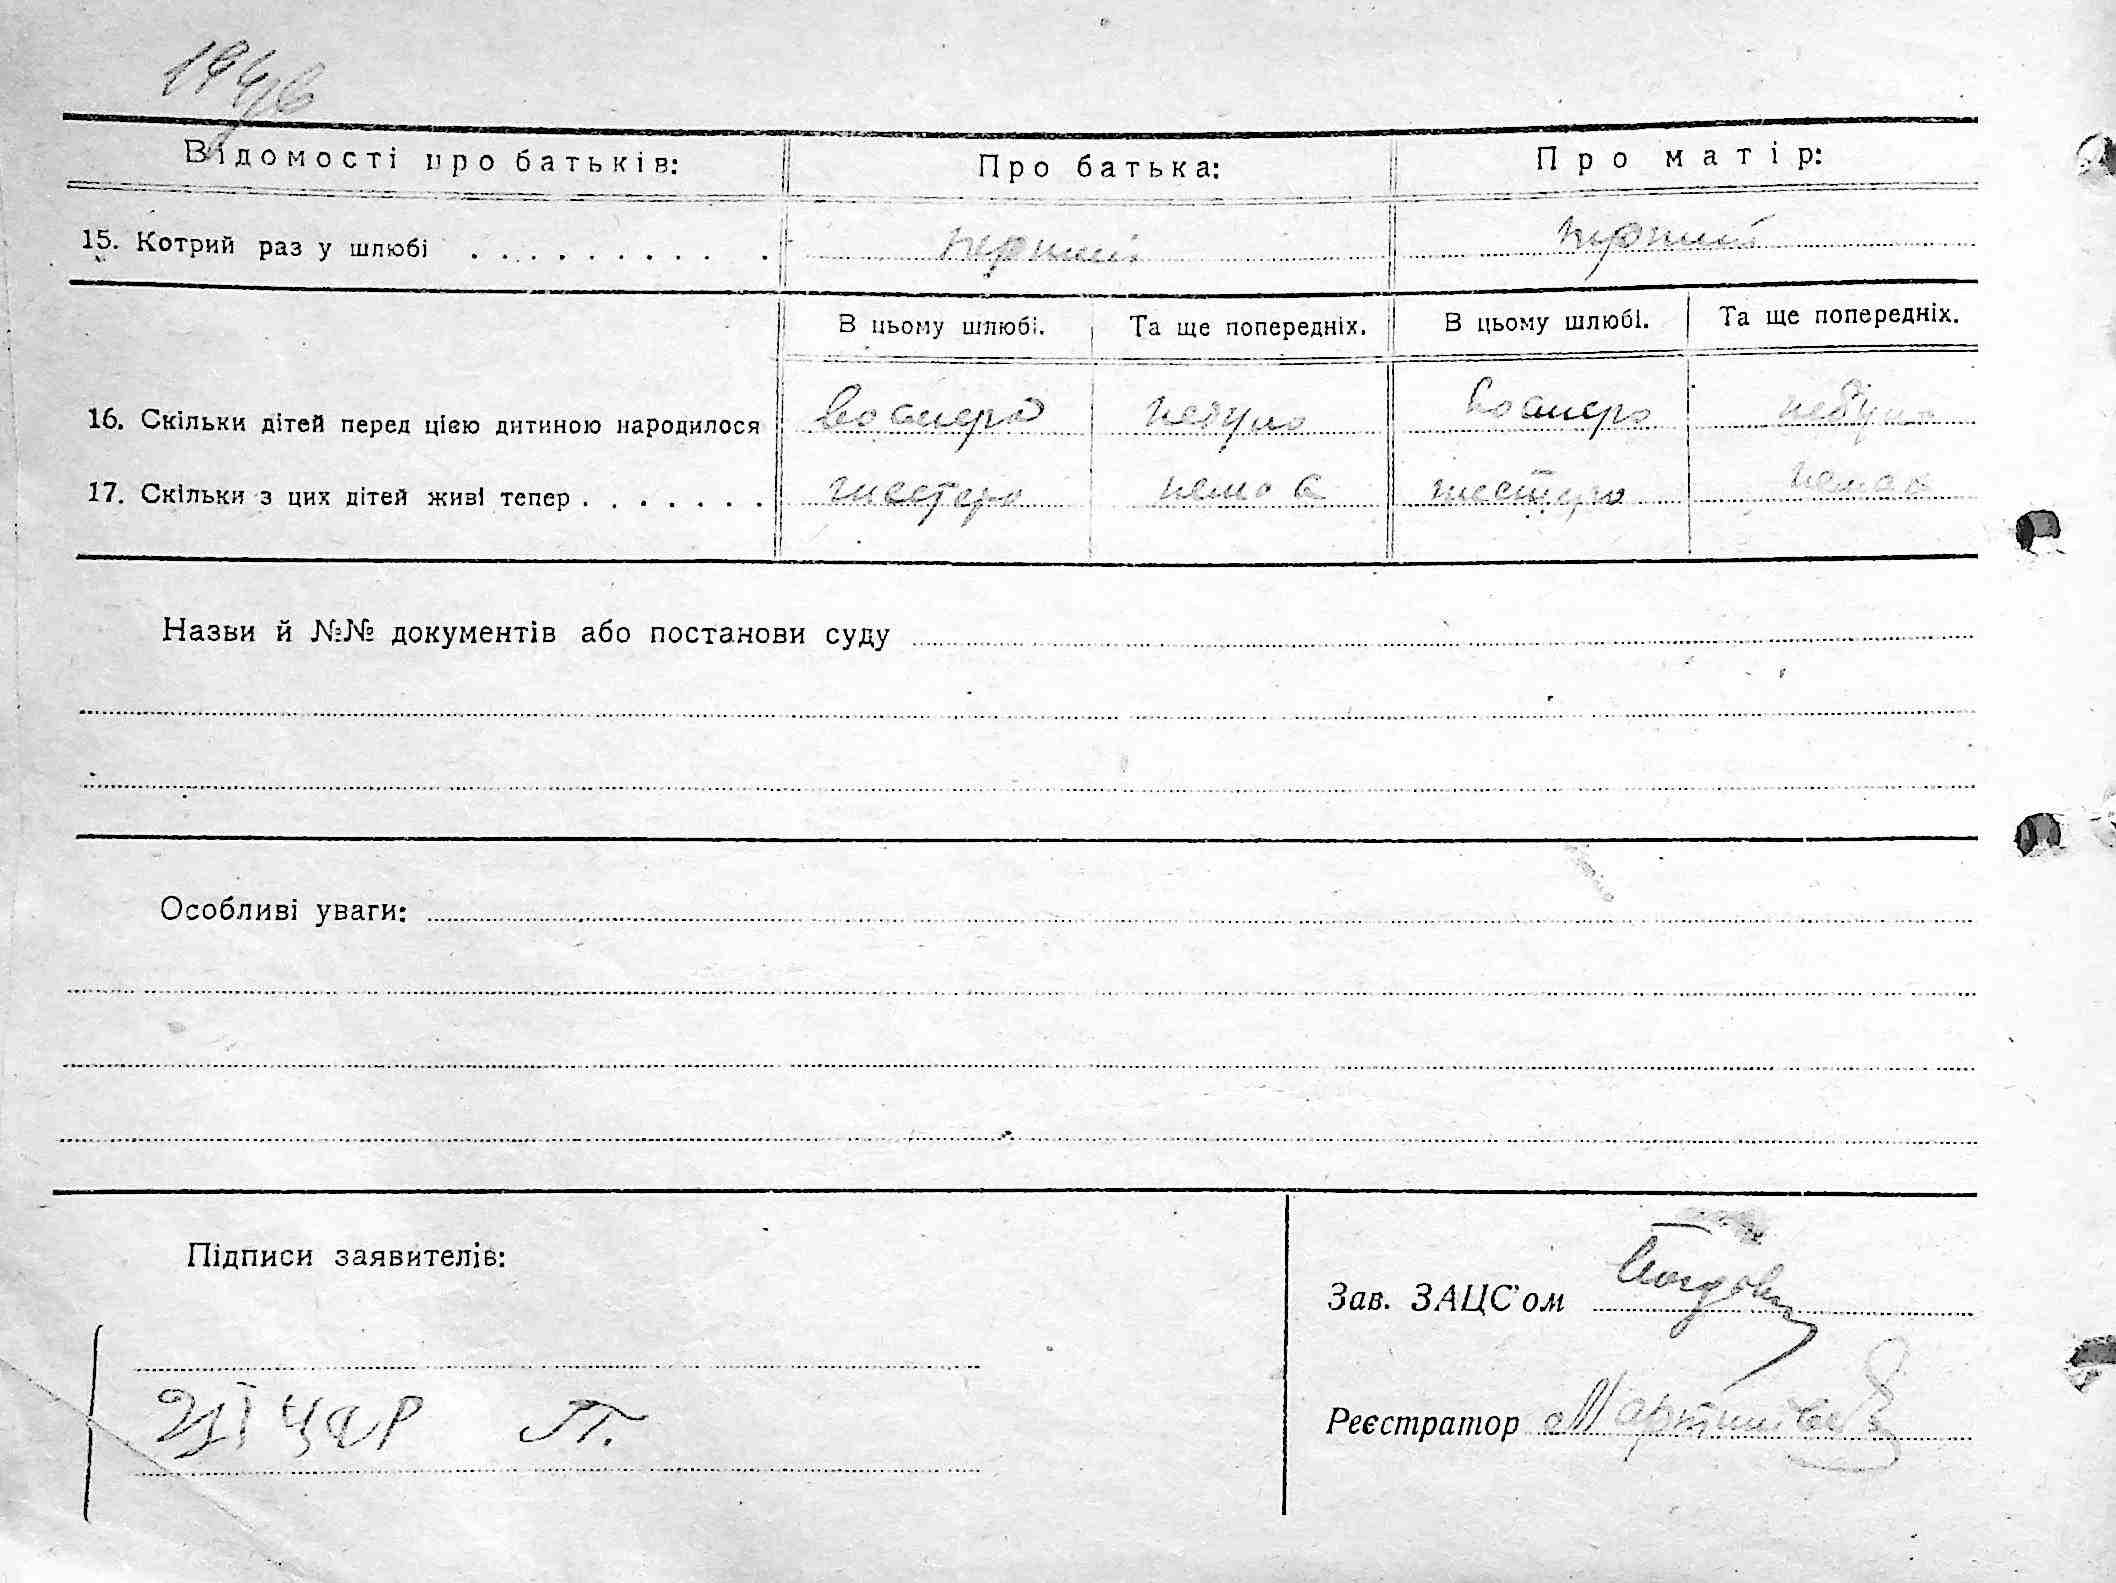 Відомості про батьків: Про батька: Про матір:
15. Котрий раз у шлюбі . . . . . . . . . . . перший перший
В цьому шлюбі. Та ще попередніх. В цьому шлюбі. Та ще попередніх.
16. Скільки дітей перед цією дитиною народилося восмеро небуло восмеро небуло
17. Скільки з цих дітей живі тепер . . . . . . . шестеро немає шестеро немає
Назви й №№ документів або постанови суду
Особливі уваги:
Підписи заявителів:
Зав. ЗАЦС'ом
Реєстратор